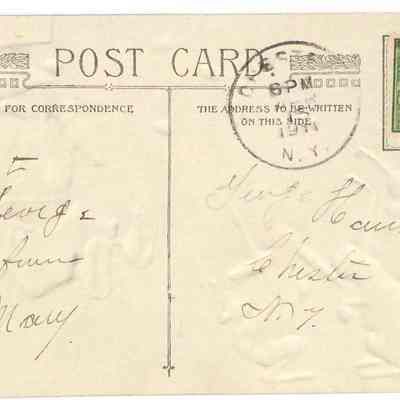 POST CARD
CHESTER
6 PM
1911
N.Y.
FOR CORRESPONDENCE
THE ADDRESS TO BE WRITTEN
ON THIS SIDE
To
George
from
Mary
George
Chester
N.Y.